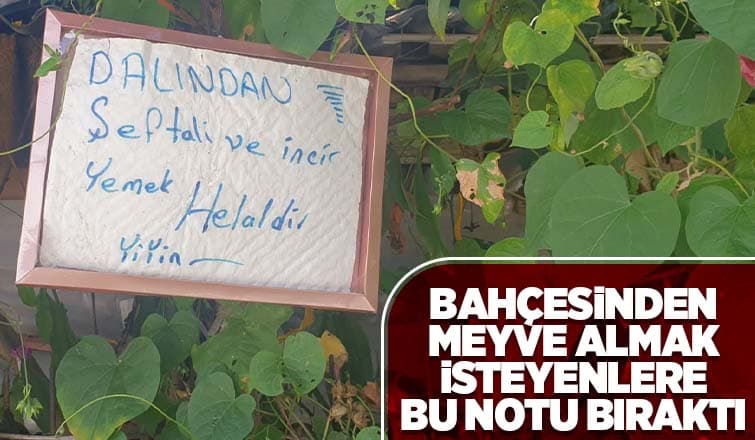 DALINDAN
Şeftali ve incir
Yemek Helaldir
Yiyin
BAHÇESİNDEN
MEYVE ALMAK
İSTEYENLERE
BU NOTU BIRAKTI